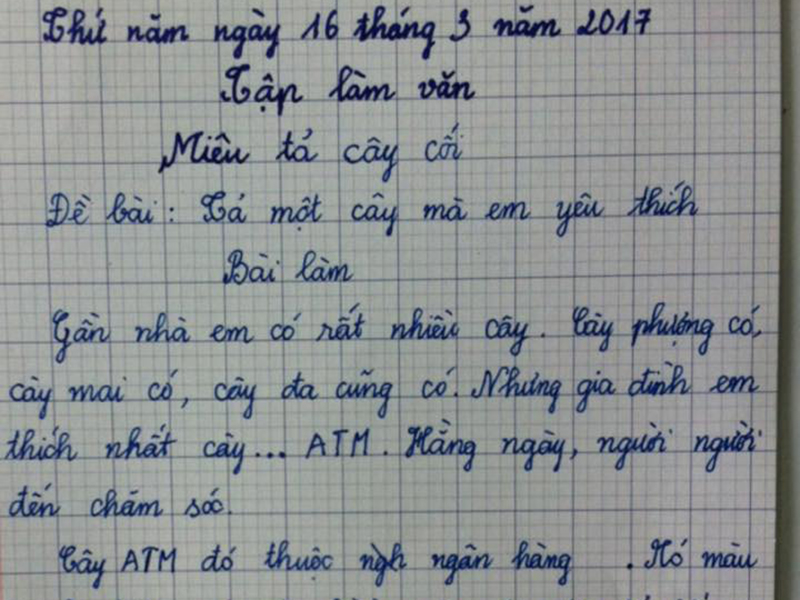 Thứ năm ngày 16 tháng 3 năm 2017
Tập làm văn
Miêu tả cây cối
Đề bài: Tả một cây mà em yêu thích
Bài làm
Gần nhà em có rất nhiều cây. Cây phượng có,
cây mai có, cây đa cũng có. Nhưng gia đình em
thích nhất cây... ATM. Hằng ngày, người người
đến chăm sóc.
Cây ATM đó thuộc ngh ngân hàng . Nó màu